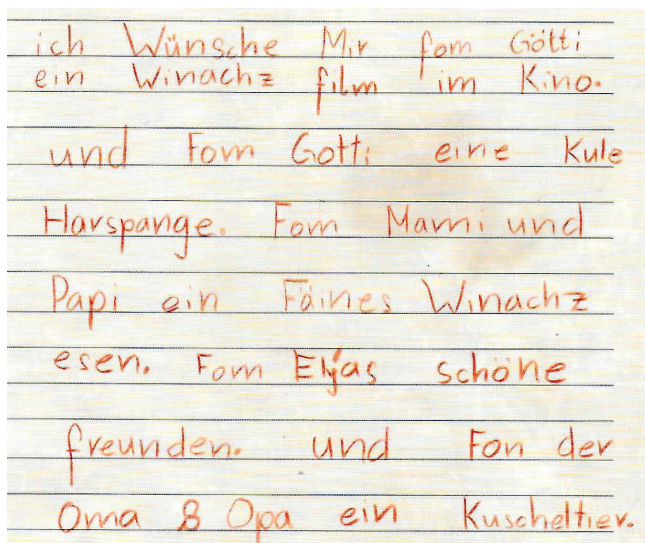 ich Wünsche Mir fom Götti
ein Winachz film im Kino.
und Fom Gotti eine Kule
Harspange. Fom Mami und
Papi ein Fäines Winachz
esen. Fom Elyas schöne
freunden. und Fon der
Oma & Opa ein Kuscheltier.